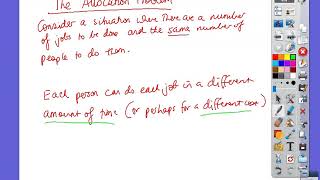 The Allocation Problem
Consider a situation where there are a number
of jobs to be done and the same number of
people to do them.
Each person can do each job in a different
amount of time (or perhaps for a different cost)